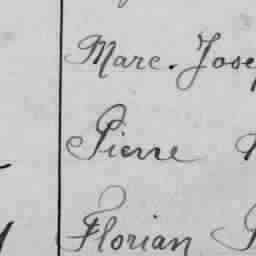 Marc. Jose
Pierre
Florian